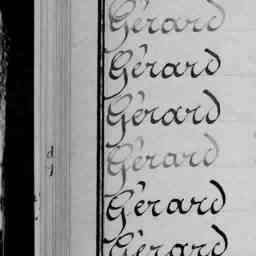 Gérard
Gérard
Gérard
Gérard
Gérard
Gérard